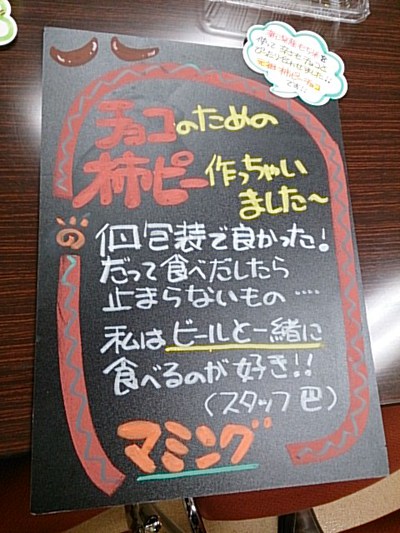 チョコのための
柿ピー作っちゃい
ました〜
個包装で良かった!
だって食べだしたら
止まらないもの‥‥
私はビールと一緒に
食べるのが好き!!
(スタッフ巴)
マミング